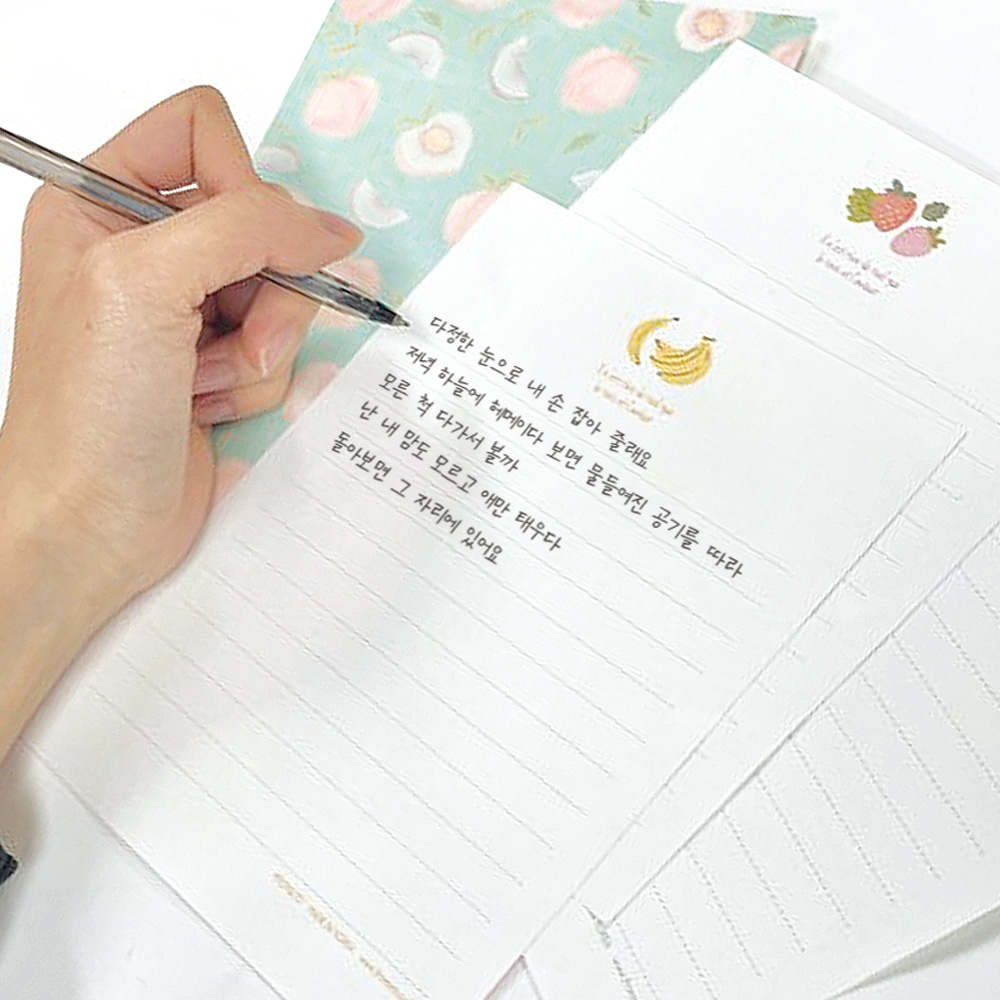 다정한 눈으로 내 손 잡아 줄래요
저녁 하늘에 헤메이다 보면 물들여진 공기를 따라
모른 척 다가서 볼까
난 내 맘도 모르고 애만 태우다
돌아보면 그 자리에 있어요